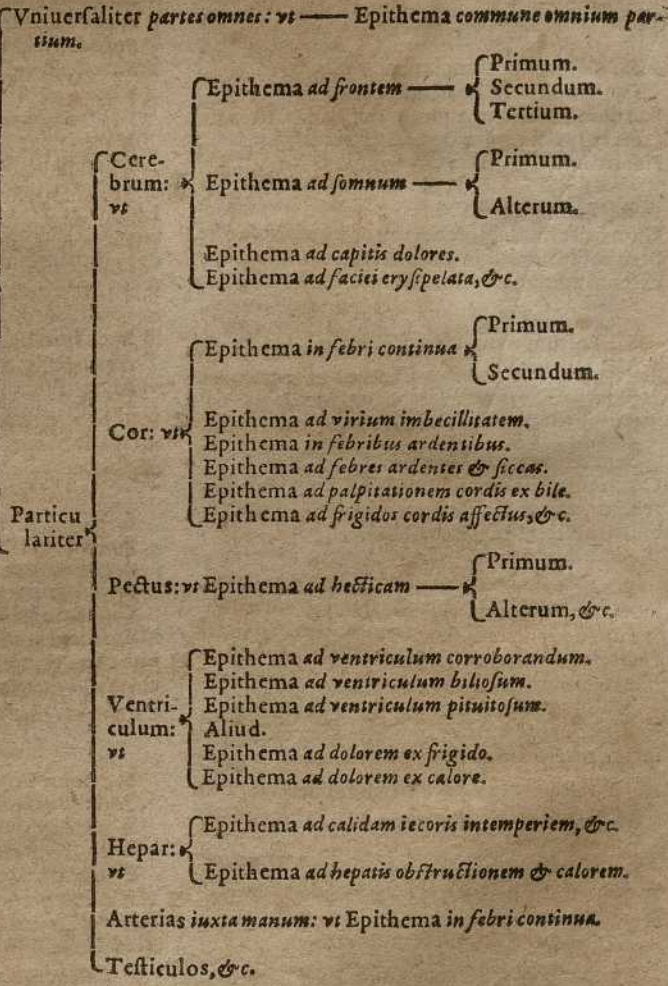 Vniuerſaliter partes omnes: vt Epithema commune omnium par-
tium.
Epithema ad frontem
Primum.
Secundum.
Tertium.
Cere-
brum:
vt
Epithema ad ſomnum
Primum.
Alterum.
Epithema ad capitis dolores.
Epithema ad faciei eryſipelata, &c.
Epithema in febri continua
Primum.
Secundum.
Cor: vt
Epithema ad virium imbecillitatem.
Epithema in febribus ardentibus.
Epithema ad febres ardentes & ſiccas.
Epithema ad palpitationem cordis ex bile.
Epithema ad frigidos cordis affectus, &c.
Particu
lariter
Pectus: vt Epithema ad hecticam
Primum.
Alterum, &c.
Ventri-
culum:
vt
Epithema ad ventriculum corroborandum.
Epithema ad ventriculum bilioſum.
Epithema ad ventriculum pituitoſum.
Aliud.
Epithema ad dolorem ex frigido.
Epithema ad dolorem ex calore.
Hepar:
vt
Epithema ad calidam iecoris intemperiem, &c.
Epithema ad hepatis obſtructionem & calorem.
Arterias iuxta manum: vt Epithema in febri continua.
Teſticulos, &c.